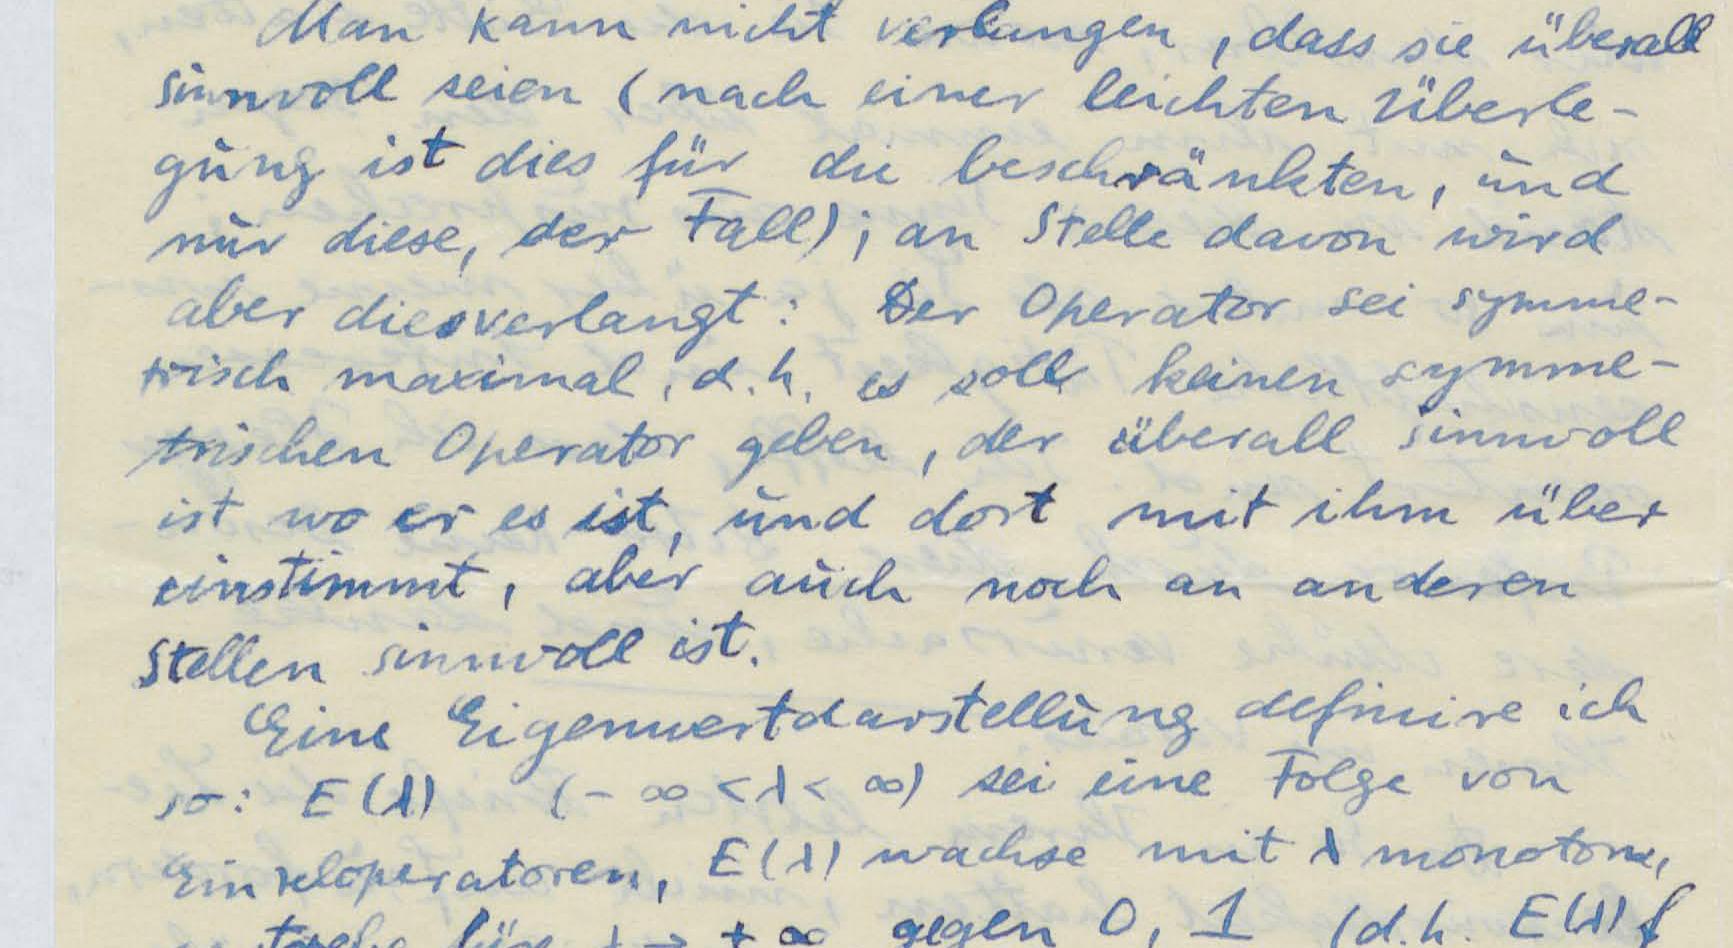 Man kann nicht verlangen, dass sie überall
sinnvoll seien (nach einer leichten Überle-
gung ist dies für die beschränkten, und
nur diese, der Fall); an Stelle davon wird
aber dies verlangt: Der Operator sei symme-
trisch maximal, d.h. es soll keinen symme-
trischen Operator geben, der überall sinnvoll
ist wo er es ist, und dort mit ihm über
einstimmt, aber auch noch an anderen
Stellen sinnvoll ist.
Eine Eigenwertdarstellung definire ich
so: E(λ) (-∞<λ<∞) sei eine Folge von
Einzeloperatoren, E(λ) wachse mit λ monoton,
strebe für λ → ±∞ gegen 0, 1 (d.h. E(λ)f